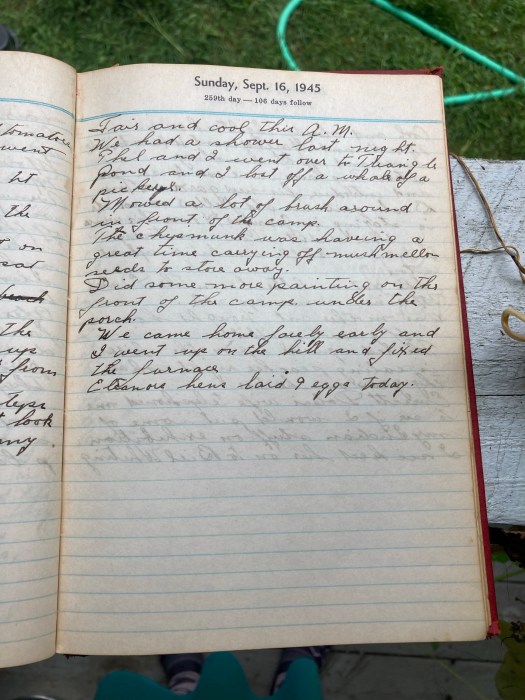 Sunday, Sept. 16, 1945
259th day — 106 days follow
Fair and cool this A.M.
We had a shower last night.
Phil and I went over to Triangle
Pond and I lost off a whale of a
pickeyrl.
Mowed a lot of brush around
in front of the camp.
The chipmunk was haveing a
great time carrying off muskmellon
seeds to store away.
Did some more painting on the
front of the camp under the
porch.
We came home farely early and
I went up on the hill and fixed
the furnace
Eleanors hens laid 9 eggs today.
tomatoe
went
let
the
on
sat
the
up
from
steps
look
my